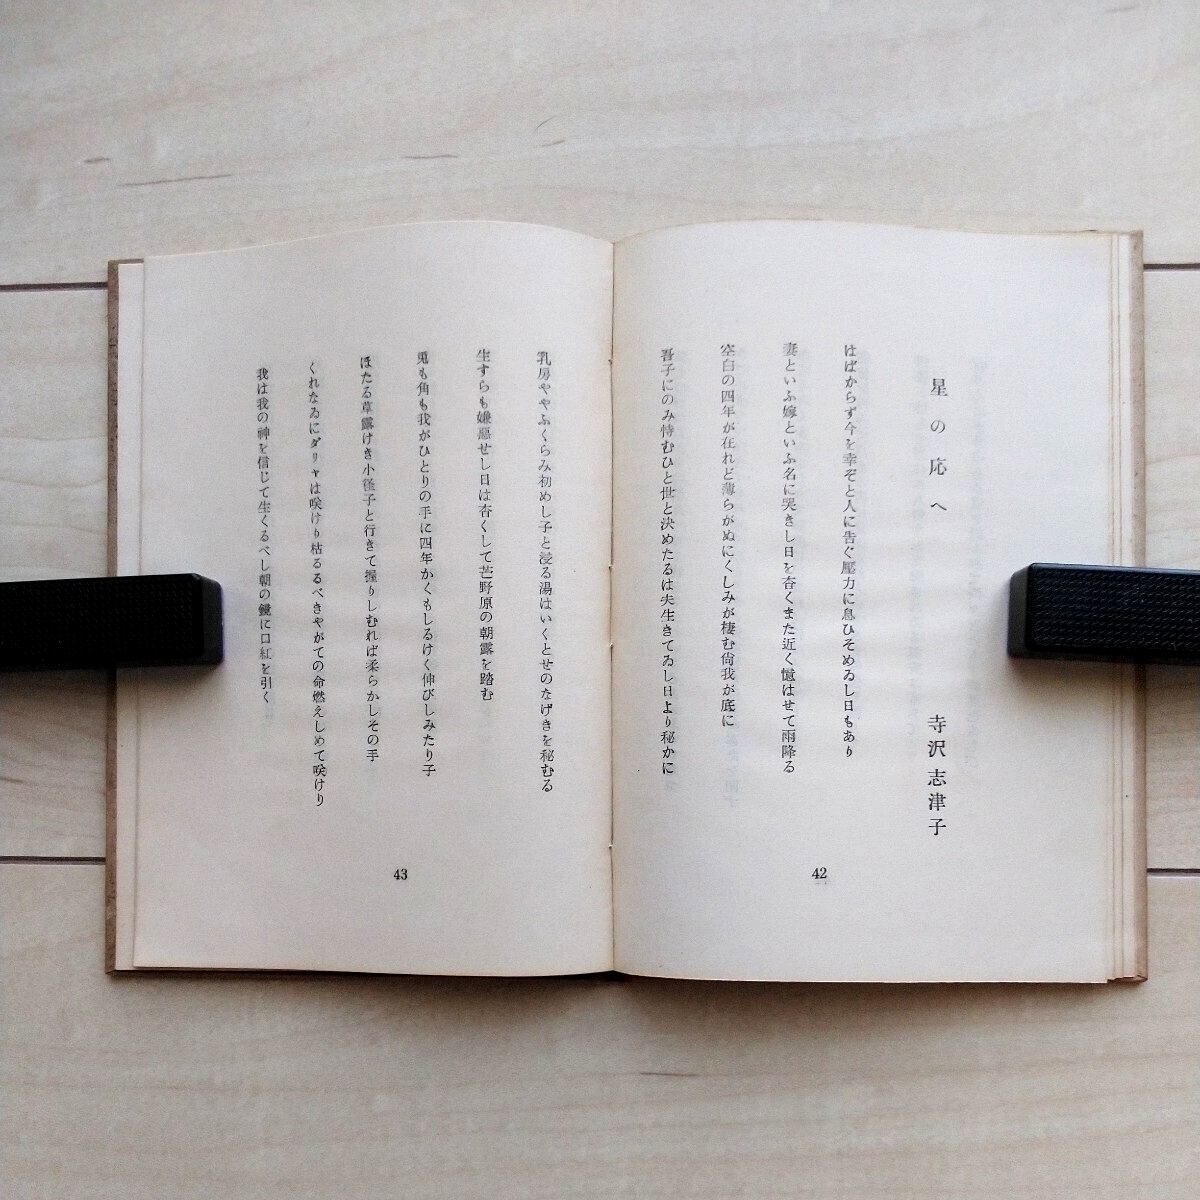 星の応へ
寺沢志津子
はばからず今を幸ぞと人に告ぐ壓力に息ひそめゐし日もあり
妻といふ嫁といふ名に哭きし日を杳くまた近く憶はせて雨降る
空白の四年が在れど薄らがぬにくしみが棲む尙我が底に
吾子にのみ恃むひと世と決めたるは夫生きてゐし日より秘かに
42
乳房ややふくらみ初めし子と浸る湯はいくとせのなげきを秘むる
生すらも嫌惡せし日は杳くして芒野原の朝露を踏む
兎も角も我がひとりの手に四年かくもしるけく伸びしみたり子
ほたる草露けき小径子と行きて握りしむれば柔らかしその手
くれなゐにダリヤは咲けり枯るるべきやがての命燃えしめて咲けり
我は我の神を信じて生くるべし朝の鏡に口紅を引く
43